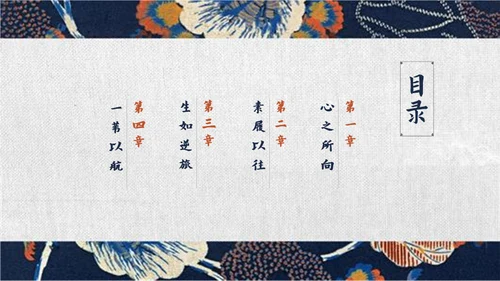 目录
第一章
心之所向
第二章
素履以往
第三章
生如逆旅
第四章
一苇以航